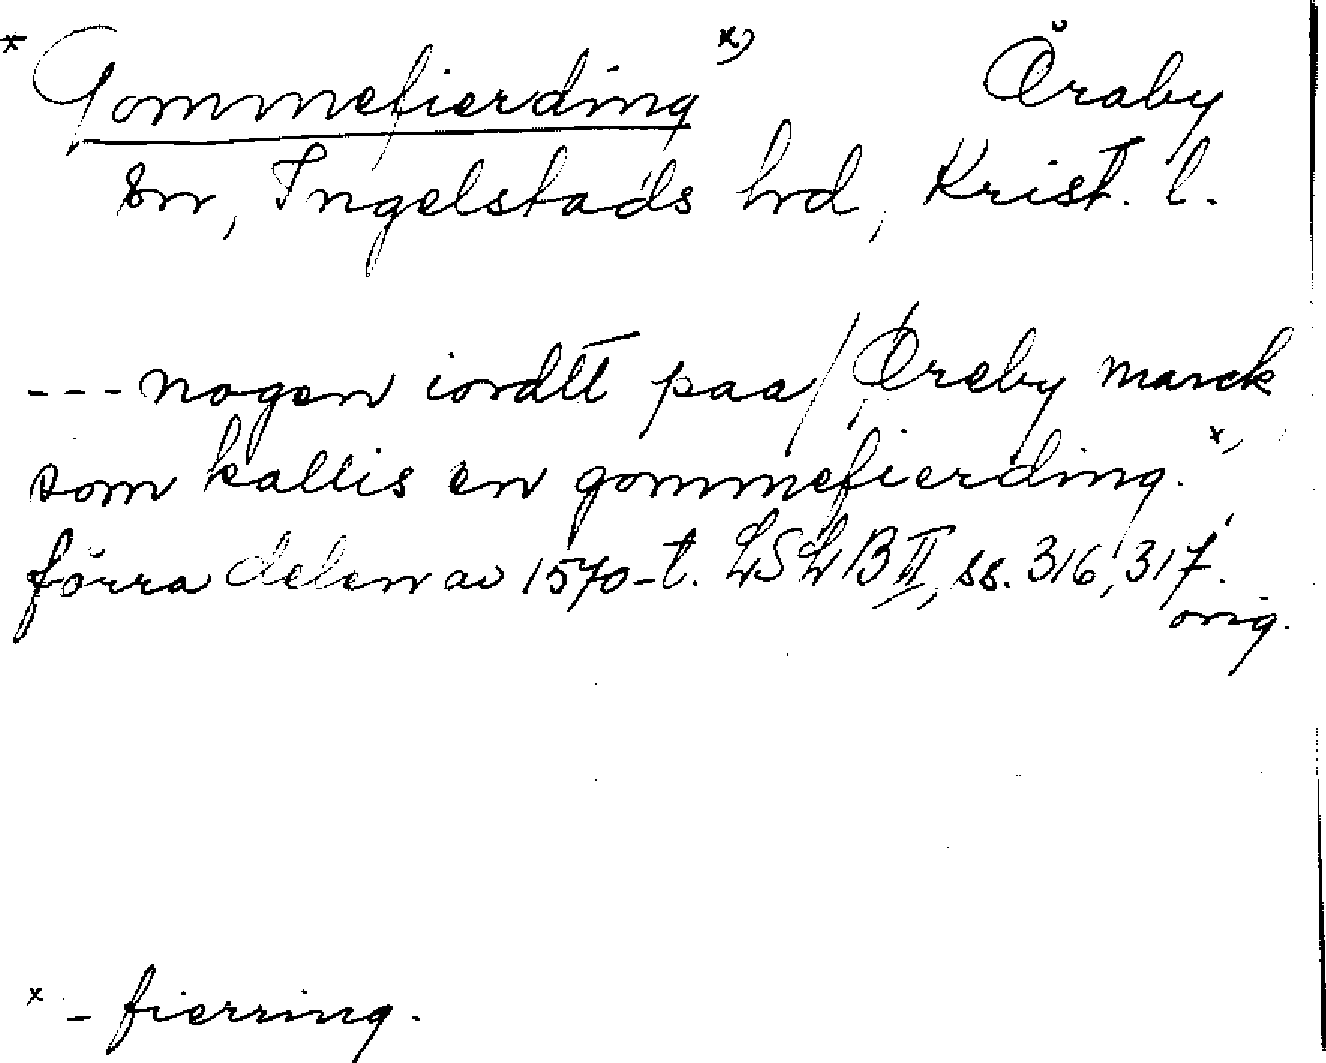 * Gommefierding x) Öraby
sn, Ingelstads hrd, Krist. l.
--- nogen iordtt paa / Øreby marck
som kallis en gommefierding. x)
förra delen av 1570-t. LSLB II, ss. 316, 317.
orig.
x - fierring.